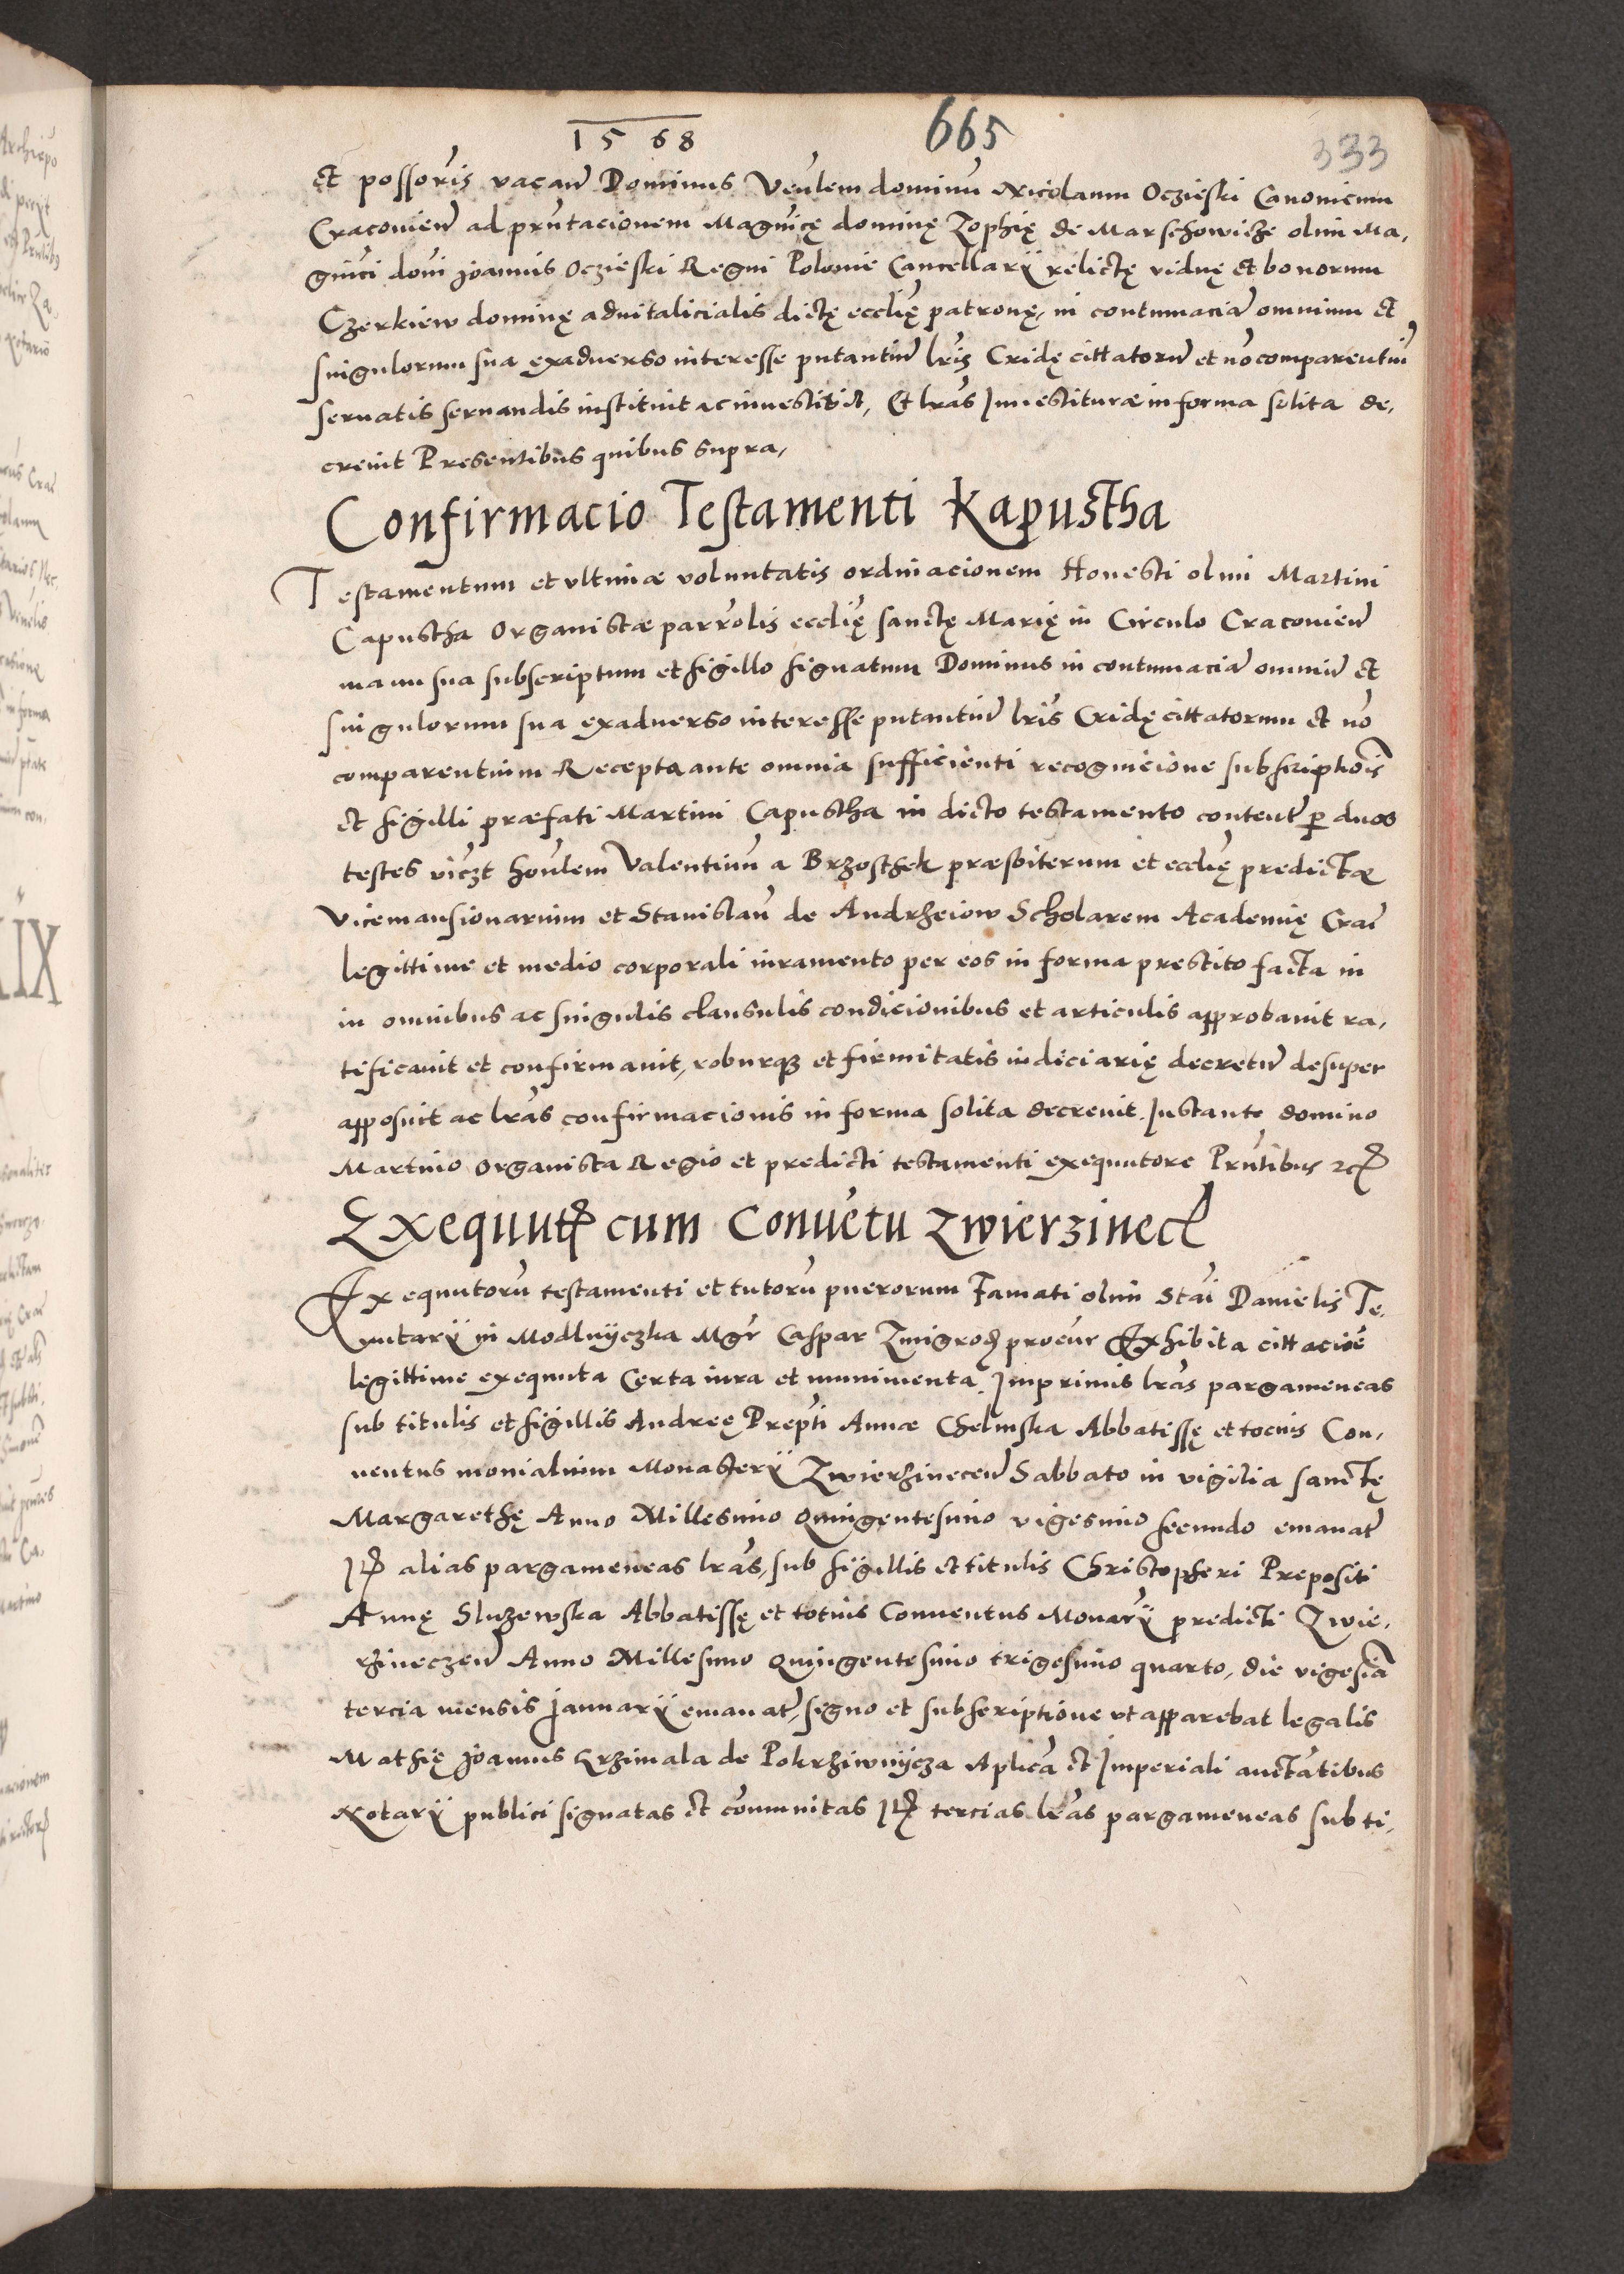 1568
665
333
et possoris vacan̄ Dominus Venlem dominū Nicolaum Oczieski Canonicum
Cracovien̄ ad pñtacionem Magnicę dominę Zophię de Marschowicze olim Ma,
gnici doni Joannis Oczieski Regni Polonie Cancellarÿ relictę viduę et bonorum
Czerkiew dominę aduitalicialis dictę ecclię patronę, in contumaciā omnium et
singulorum sua exaduerso interesse putantiū lris Cridę cittatorū et nō comparentiū
seruatis seruandis instituit ac inuestiuit, Et lras Inuestituræ in forma solita de,
creuit Presentibus quibus supra,
Confirmacio Testamenti Kapustha
Testamentum et vltimæ voluntatis ordinacionem Honesti olim Martini
Capustha Organistæ parrolis ecclię sanctę Marię in Circulo Cracovien̄
manu sua subscriptum et sigillo signatum Dominus in contumaciā omniū et
singulorum sua exaduerso interesse putantiū lris Cridę cittatorum et nō
comparentium Recepta ante omnia sufficienti recognicione subscriptiōis
et sigilli præfati Martini Capustha in dicto testamento content̄ p duos
testes viczt honlem Valentinū a Brzosthek præsbiterum et ecclię predictæ
vicemansionarium et Stanislaū de Andrzeiow Scholarem Academię Crac̄
legittime et medio corporali iuramento per eos in forma prestito facta in
in omnibus ac singulis clausulis condicionibus et articulis approbauit ra,
tificauit et confirmauit, roburqꝫ et firmitatis iudiciarię decretū desuper
apposuit ac lras confirmacionis in forma solita decreuit. Instante domino
Martino Organista Regio et predicti testamenti exequutore Pñtibus ꝛc
Exequut̄ cum Convētu Zwierzinec̄
Exequutorū testamenti et tutorū puerorum Famati olim Stai Danielis Te,
nutarÿ in Modlnÿczka Mgr̄ Caspar Zmigrod procur̄ Exhibita cittaciōe
legittime exequuta Certa iura et munimenta. Imprimis lras pargameneas
sub titulis et sigillis Andreę Prepti Annæ Chelmska Abbatissę et tocius Con,
uentus monialium Monasterÿ Zwierzinecen̄ Sabbato in vigilia sanctę
Margarethę Anno Millesimo Quingentesimo vigesimo secundo emanat̄
It̄ alias pargameneas lras, sub sigillis et titulis Christopheri Prepositi
Annę Sluzewska Abbatissę et totius Conuentus Monarÿ predicti Zwie,
rzineczen̄ Anno Millesimo Quingentesimo trigesimo quarto, die vigesiā
tercia mensis Januarÿ emanat̄, signo et subscriptione vt apparebat legalis
Mathię Joannis Krzimala de Pokrziwnÿcza Aplica et Imperiali auctatibus
Notarÿ publici signatas et cōmunitas It̄ tercias lras pargameneas sub ti,